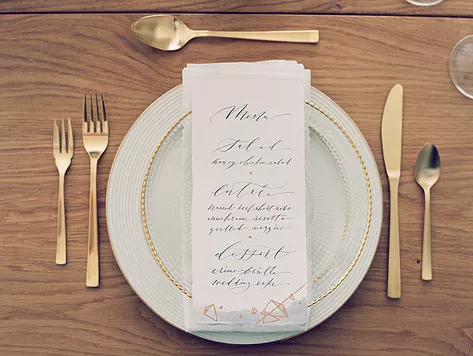 Menu
Salad
honey chicken salad
Entrée
braised beef short ribs
mushroom risotto
grilled veggies
dessert
crème brûlée
wedding cake